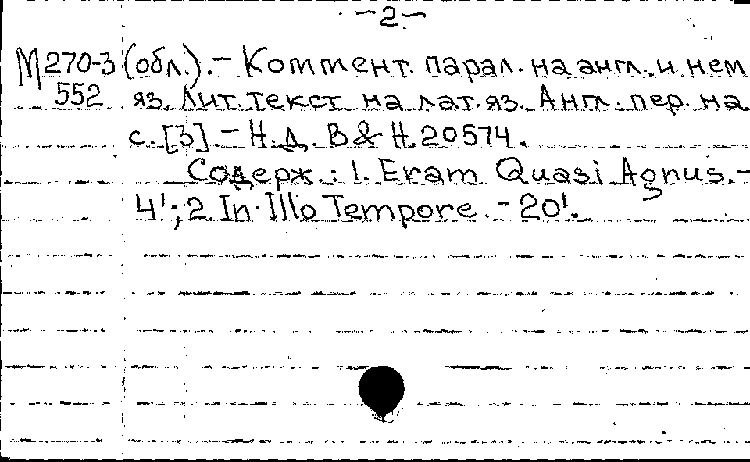 -2-
М270-3 (обл.). - Коммент. парал. на англ. и нем
552 яз. Лит. текст на лат. яз. Англ. пер. на
с. [3] - Н.Д. B & H. 20574.
Содерж.: 1. Eram Quasi Agnus. -
4'; 2. In Illo Tempore. - 20'.